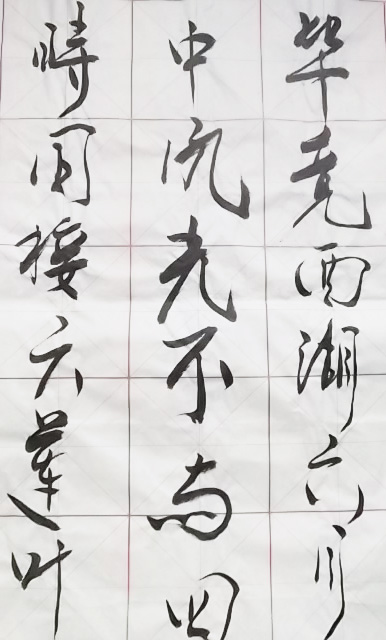 毕竟西湖六月
中风光不与四
時同接天莲叶